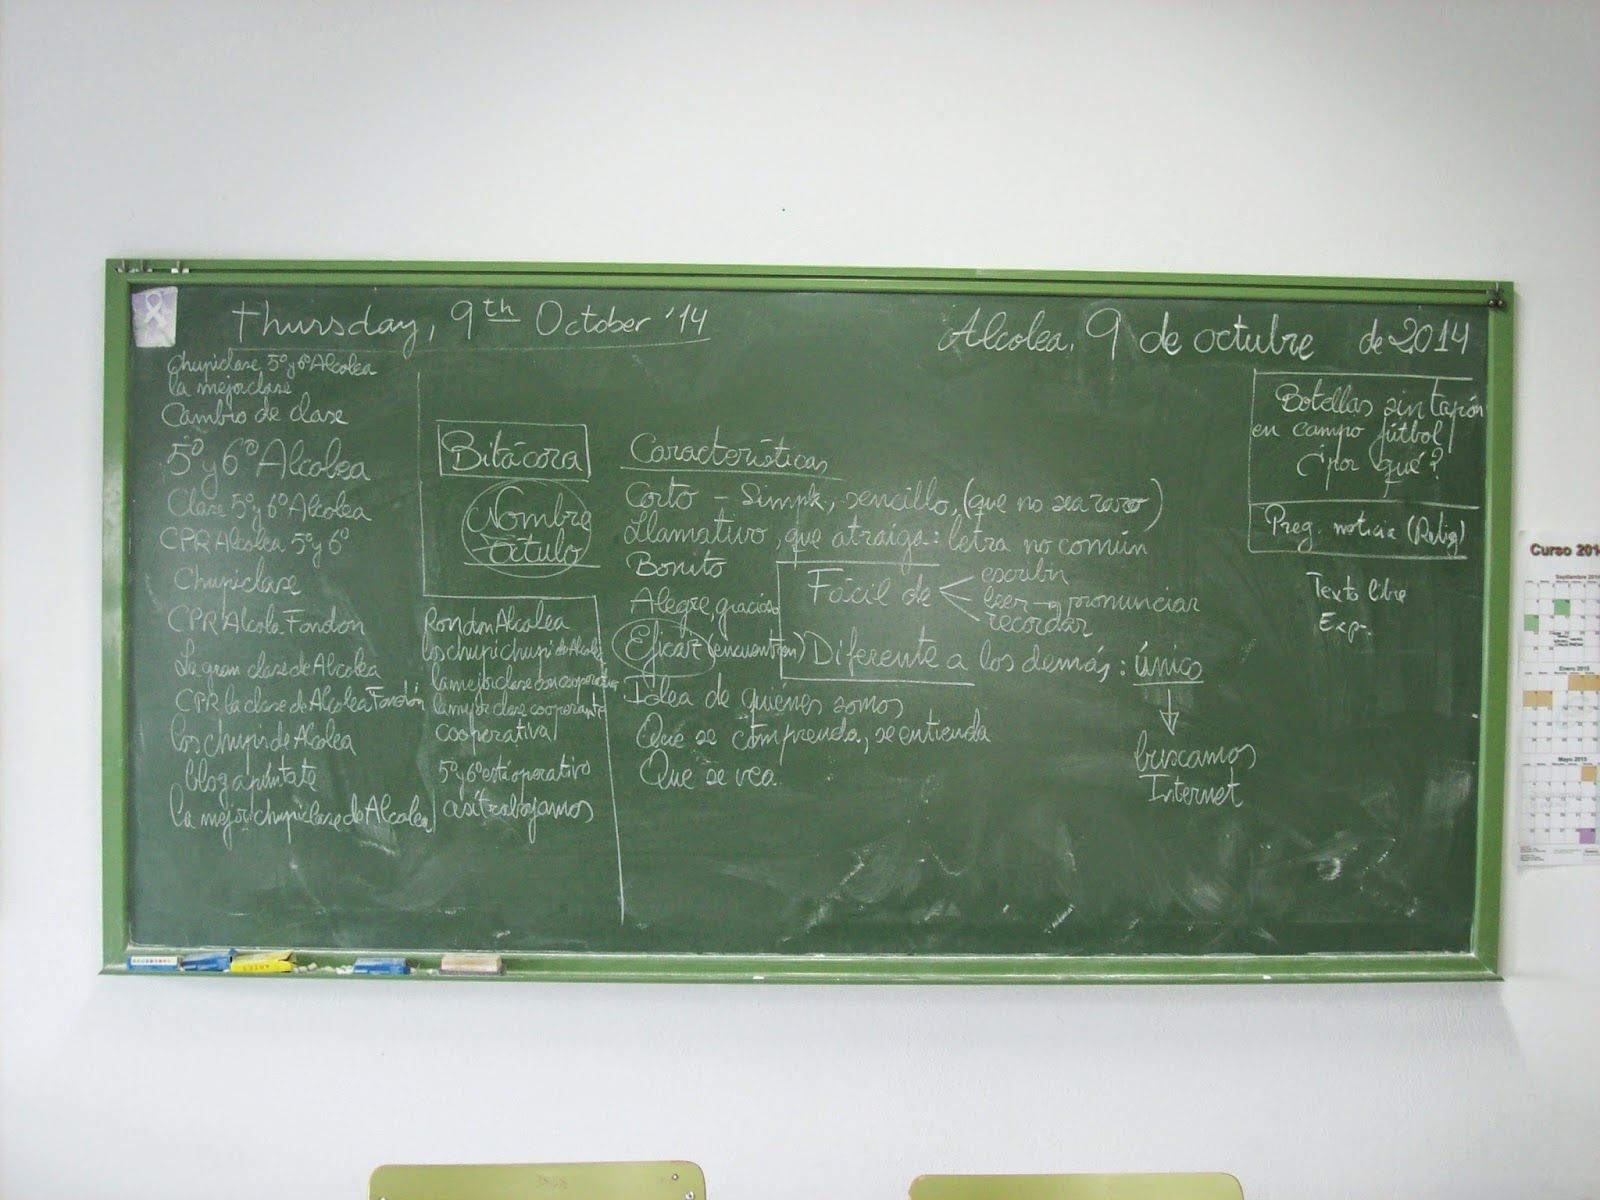 Thursday, 9th October '14
Alcolea, 9 de octubre de 2014
Chupiclase 5º y 6º Alcolea
la mejor clase
Cambio de clase
5º y 6º Alcolea
Clase 5º y 6º Alcolea
CPR Alcolea 5º y 6º
Chupiclase
CPR Alcolea Fondon
La gran clase de Alcolea
CPR la clase de Alcolea Fondón
los chupis de Alcolea
blog apúntate
la mejor chupiclase de Alcolea
Bitácora
Nombre
Título
FondonAlcolea
los chupi chupi de Alcolea
la mejor clase con cooperativa
la mejor clase cooperante
cooperativa
5º y 6º está operativo
así trabajamos
Características
Corto - Simple, sencillo, (que no sea raro)
Llamativo, que atraiga: letra no común
Bonito
Alegre, gracioso
Eficaz (encuentren)
Idea de quiénes somos
Que se comprenda, se entienda
Que se vea.
Fácil de
escribir
leer → pronunciar
recordar
Diferente a los demás: único
buscamos
Internet
Botellas sin tapón
en campo fútbol
¿por qué?
Preg. noticia (Relig)
Texto libre
Exp.
Curso 201
Septiembre 201
Enero 2015
Mayo 2015